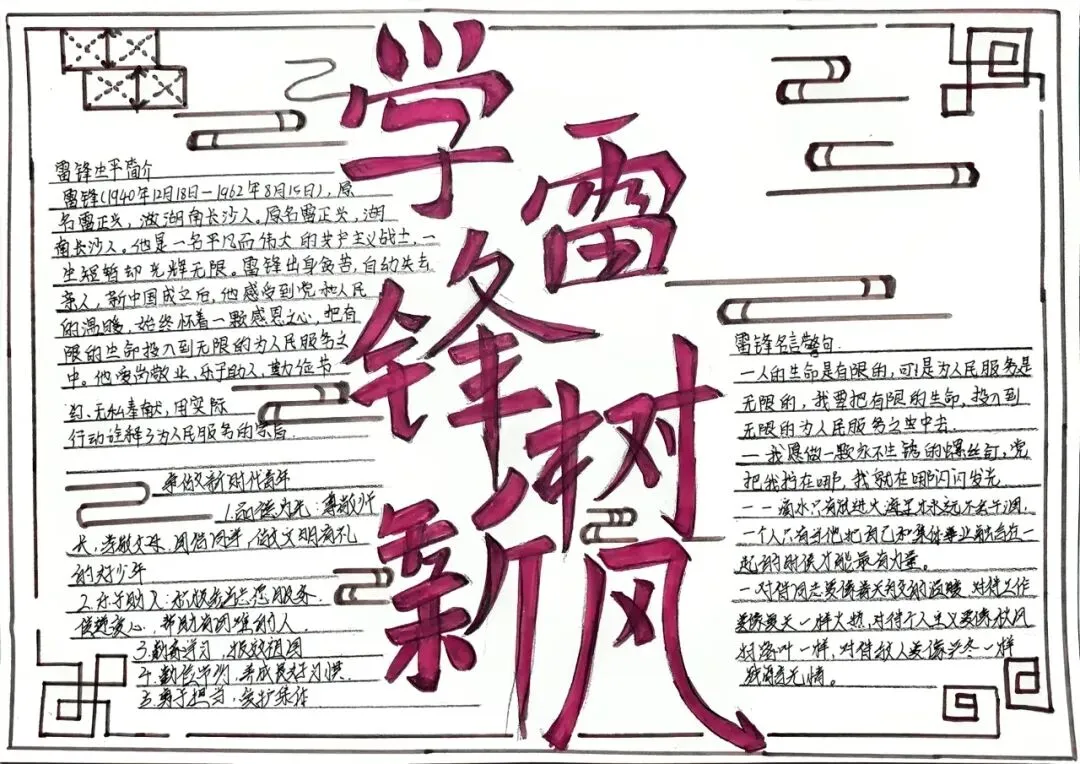 学雷锋树新风
雷锋生平简介
雷锋(1940年12月18日—1962年8月15日)，原
名雷正兴，湖南长沙人。原名雷正兴，湖
南长沙人。他是一名平凡而伟大的共产主义战士，一
生短暂却光辉无限。雷锋出身贫苦，自幼失去
亲人，新中国成立后，他感受到党和人民
的温暖，始终怀着一颗感恩之心，把有
限的生命投入到无限的为人民服务之
中。他爱岗敬业、乐于助人、勤俭节
约、无私奉献，用实际
行动诠释了为人民服务的宗旨
争做新时代青年
1.品德为先：尊敬师
长，孝敬父母，团结同学，做文明有礼
的好少年
2.乐于助人：积极参与志愿服务
传递爱心，帮助有困难的人
3.勤奋学习，报效祖国
4.勤俭节约，养成良好习惯
5.勇于担当，爱护
雷锋名言警句
一人的生命是有限的，可是为人民服务是
无限的，我要把有限的生命，投入到
无限的为人民服务之中去
一我愿做一颗永不生锈的螺丝钉，党
把我拧在哪，我就在哪闪闪发光
一一滴水只有放进大海里才永远不会干涸，
一个人只有当他把自己和集体事业融合在一
起的时候才能最有力量。
一对待同志要像春天般的温暖，对待工作
要像夏天一样火热，对待个人主义要像秋风
扫落叶一样，对待敌人要像严冬一样
残酷无情。